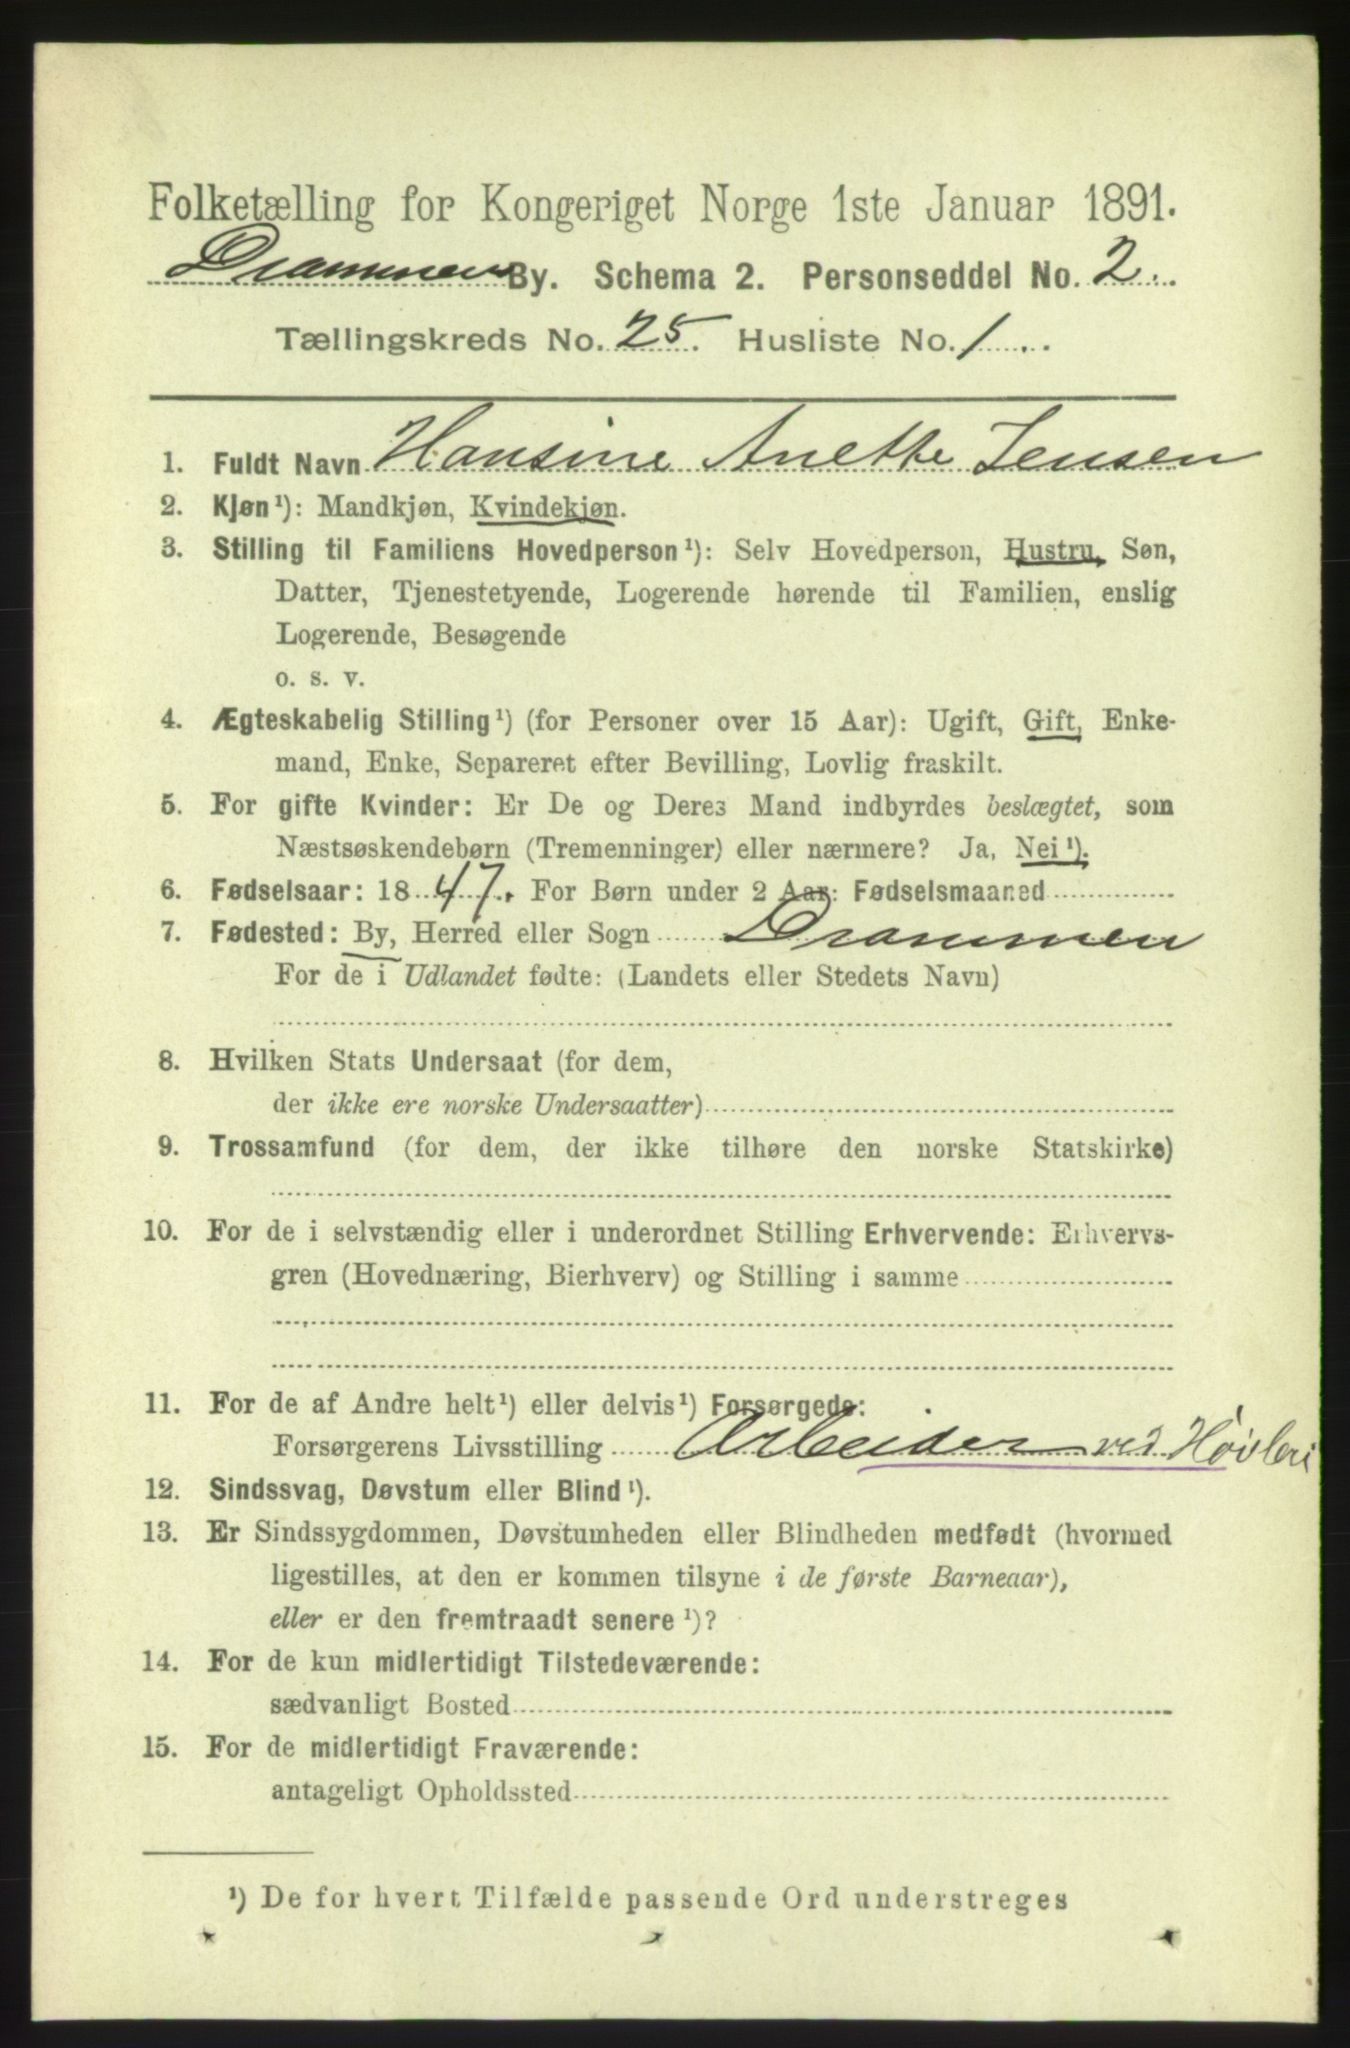 Folketælling for Kongeriget Norge 1ste Januar 1891.
Drammen By. Schema 2. Personseddel No. 2.
Tællingskreds No. 25. Husliste No. 1.
1. Fuldt Navn Hansine Anette Jensen
2. Kjøn¹): Mandkjøn, Kvindekjøn.
3. Stilling til Familiens Hovedperson¹): Selv Hovedperson, Hustru, Søn,
Datter, Tjenestetyende, Logerende hørende til Familien, enslig
Logerende, Besøgende
o. s. v.
4. Ægteskabelig Stilling¹) (for Personer over 15 Aar): Ugift, Gift, Enke-
mand, Enke, Separeret efter Bevilling, Lovlig fraskilt.
5. For gifte Kvinder: Er De og Deres Mand indbyrdes beslægtet, som
Næstsøskendebørn (Tremenninger) eller nærmere? Ja, Nei¹).
6. Fødselsaar: 1847. For Børn under 2 Aar: Fødselsmaaned
7. Fødested: By, Herred eller Sogn Drammen
For de i Udlandet fødte: (Landets eller Stedets Navn)
8. Hvilken Stats Undersaat (for dem,
der ikke ere norske Undersaatter)
9. Trossamfund (for dem, der ikke tilhøre den norske Statskirke)
10. For de i selvstændig eller i underordnet Stilling Erhvervende: Erhvervs-
gren (Hovednæring, Bierhverv) og Stilling i samme
11. For de af Andre helt¹) eller delvis¹) Forsørgede:
Forsørgerens Livsstilling Arbeider ved Høvleri
12. Sindssvag, Døvstum eller Blind¹).
13. Er Sindssygdommen, Døvstumheden eller Blindheden medfødt (hvormed
ligestilles, at den er kommen tilsyne i de første Barneaar),
eller er den fremtraadt senere¹)?
14. For de kun midlertidigt Tilstedeværende:
sædvanligt Bosted
15. For de midlertidigt Fraværende:
antageligt Opholdssted
¹) De for hvert Tilfælde passende Ord understreges